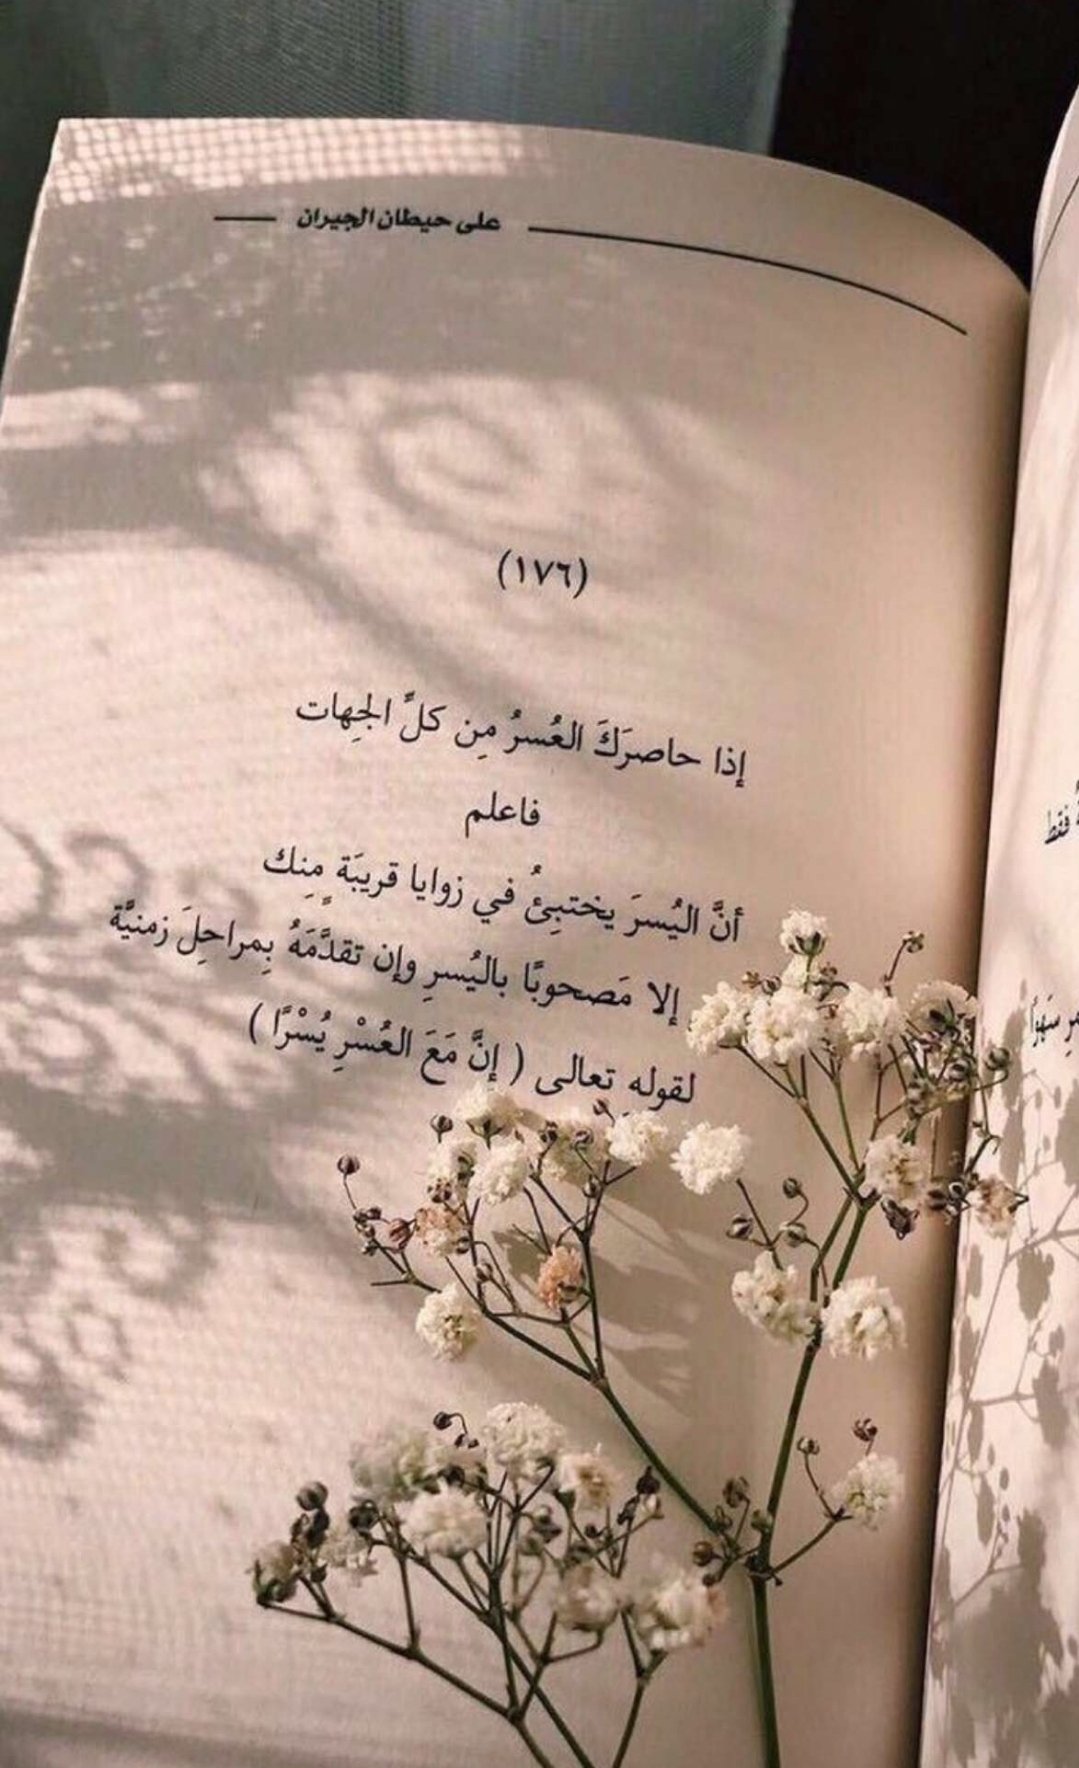 على حيطان الجيران
(١٧٦)
إذا حاصرَكَ العُسرُ مِن كلِّ الجِهات
فاعلم
أنَّ اليُسرَ يختبِئُ في زوايا قريبَةٍ مِنك
إلا مَصحوبًا باليُسرِ وإن تقدَّمَهُ بِمراحِلَ زمنيَّة
لقولهِ تعالى ( إنَّ مَعَ العُسْرِ يُسْرًا )
فقط